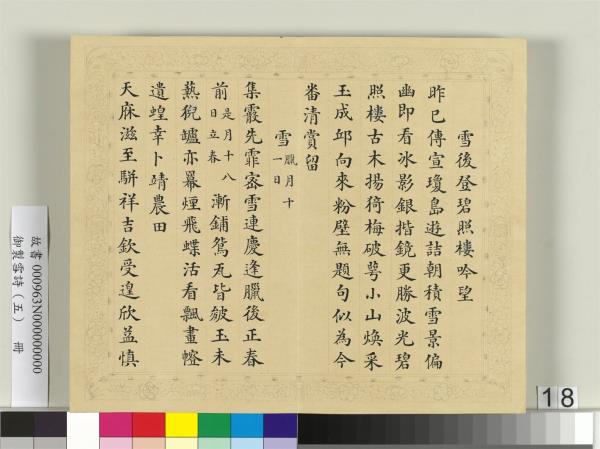 雪後登碧照樓吟望
昨已傳宣瓊島遊詰朝積雪景偏
幽即看冰影銀揩鏡更勝波光碧
照樓古木揚猗梅破萼小山煥采
玉成邱向來粉壁無題句似為今
番清賞留
雪臘月十一日
集霰先霏密雪連慶逢臘後正春
前是月十八日立春漸鋪鴛瓦皆皴玉未
爇猊罏亦羃煙飛蝶活看飄畫幨
遺蝗幸卜靖農田
天庥滋至駢祥吉欽受遑欣益慎
故書 000963N000000000
御製雪詩（五） 冊
18